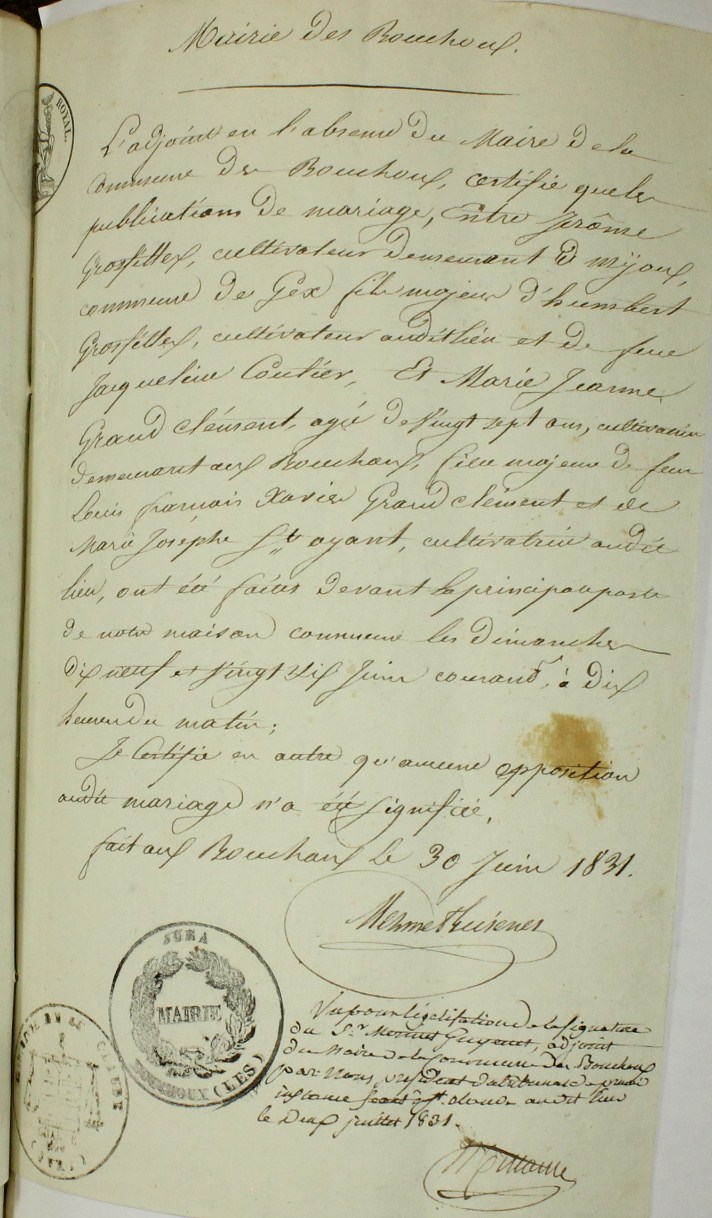 Mairie des Bouchoux.
ROYAL.
L'adjoint en l'absence du Maire de la
Commune des Bouchoux, certifie que les
publications de mariage, Entre Jérôme
Grosfillex, cultivateur demeurant à mijoux,
commune de Gex fils majeur d'humbert
Grosfillex, cultivateur audit lieu et de feue
Jacqueline Coutier, Et Marie Jeanne
Grand Clément, agée de vingt sept ans, cultivatrice
demeurant aux Bouchoux, fille majeure de feu
Louis françois Xavier Grand clément et de
Marie Joséphe St oyant, cultivatrice audit
lieu, ont été faites devant la principale porte
de notre maison commune les dimanches
dix neuf et vingt six Juin courant, à dix
heures du matin;
Je Certifie en outre qu'aucune opposition
audit mariage n'a été signifiée,
fait aux Bouchoux le 30 Juin 1831.
JURA
MAIRIE
BOUCHOUX (LES)
Vu pour légalisation de la signature
du Sr. adjoint
du Maire de la commune des Bouchoux
par Nous, président du tribunal de premiere
instance séant à st. claude audit lieu
le Deux juillet 1831.
(GEX)